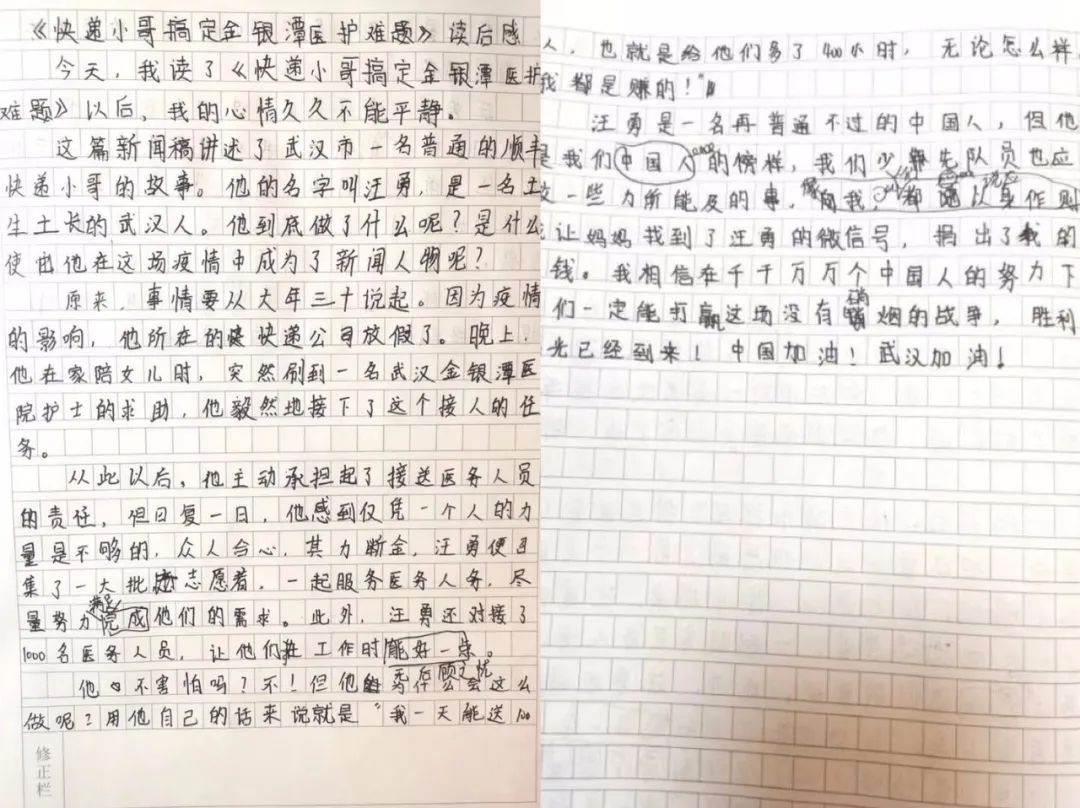 《快递小哥搞定金银潭医护难题》读后感
今天，我读了《快递小哥搞定金银潭医护
难题》以后，我的心情久久不能平静。
这篇新闻稿讲述了武汉市一名普通的顺丰
快递小哥的故事。他的名字叫汪勇，是一名土
生土长的武汉人。他到底做了什么呢？是什么
使他在这场疫情中成为了新闻人物呢？
原来，事情要从大年三十说起。因为疫情
的影响，他所在的快递公司放假了。晚上，
他在家陪女儿时，突然刷到一名武汉金银潭医
院护士的求助，他毅然地接下了这个接人的任
务。
从此以后，他主动承担起了接送医务人员
的责任，但日复一日，他感到仅凭一个人的力
量是不够的，众人合心，其力断金，汪勇便召
集了一大批志愿着，一起服务医务人务，尽
满足
量努力完成他们的需求。此外，汪勇还对接了
1000名医务人员，让他们在工作时能好一点。
无后顾之忧
他不害怕吗？不！但他为什么会这么
做呢？用他自己的话来说就是“我一天能送100
修正栏
人，也就是给他们多了400小时，无论怎么样
我都是赚的！”
汪勇是一名再普通不过的中国人，但他
是我们中国人的榜样，我们少先队员也应
一些力所能及的事，像我，都以身作则
让妈妈找到了汪勇的微信号，捐出了我的
钱。我相信在千千万万个中国人的努力下
们一定能打赢这场没有硝烟的战争，胜利
光已经到来！中国加油！武汉加油！